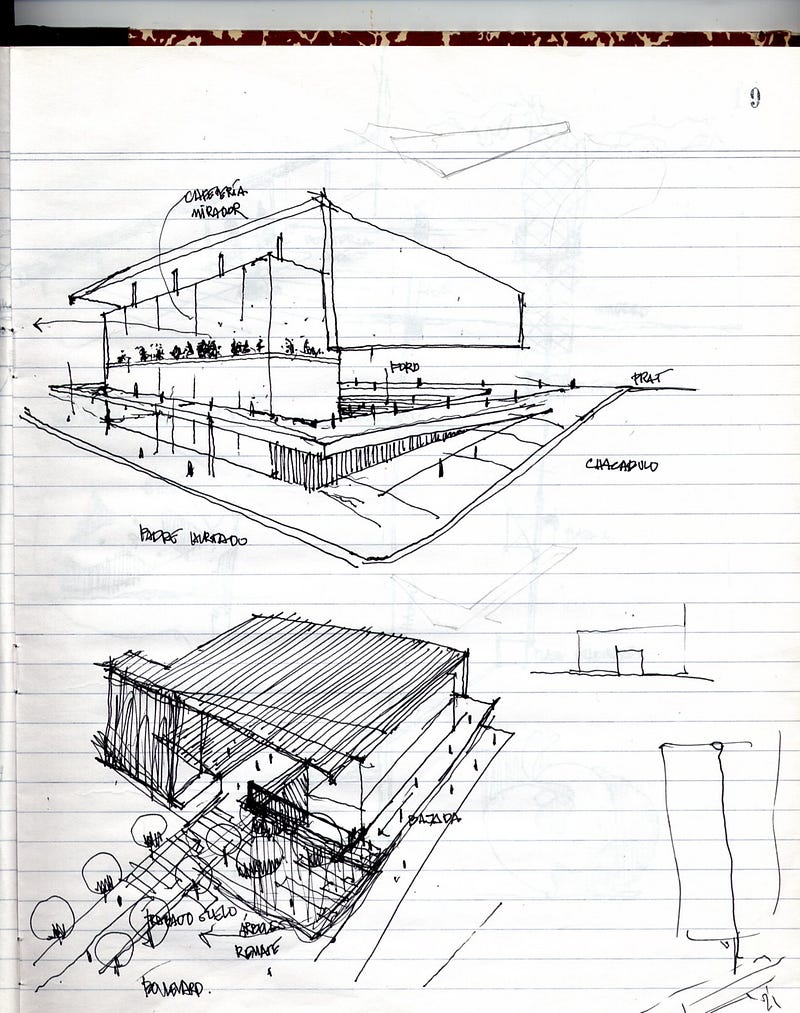 9
CAFETERÍA
MIRADOR
FORO
PRAT
CHACABUCO
PADRE HURTADO
BAJADA
TRABAJO SUELO
ÁRBOLES
REMATE
BOULEVARD.
21